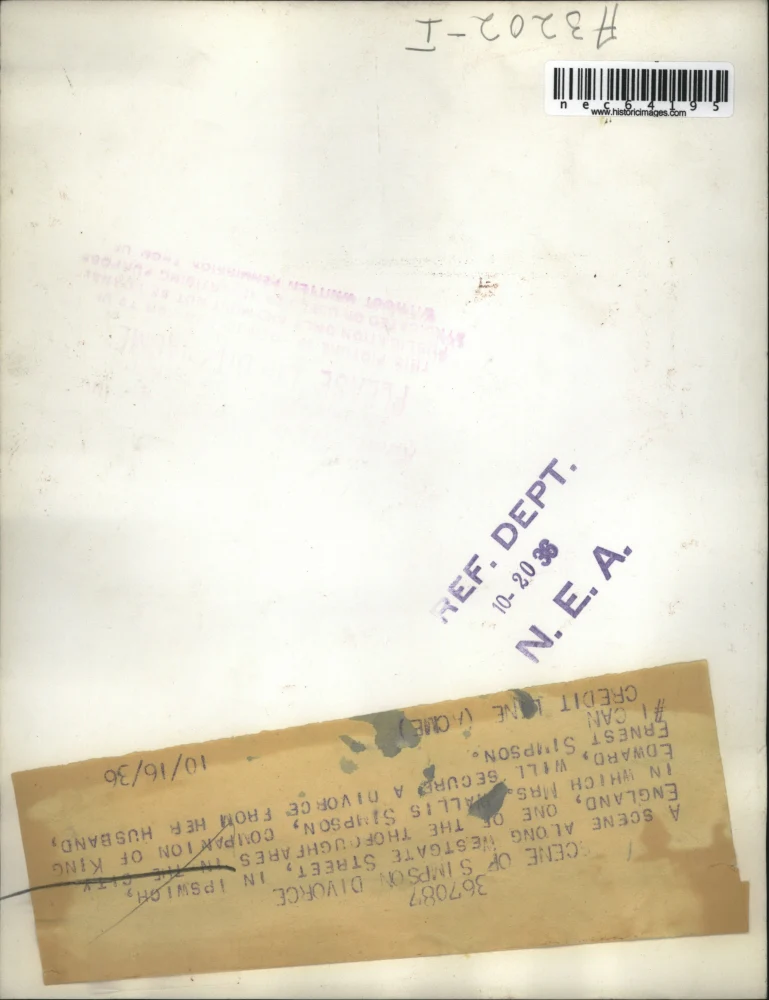 3202-I
nec64195
www.historicimages.com
PLEASE
THIS PICTURE IS
WITHOUT WRITTEN PERMISSION FROM US
REF. DEPT.
10-20 36
N. E. A.
367087
SCENE OF SIMPSON DIVORCE
A SCENE ALONG WESTGATE STREET, IN IPSWICH,
ENGLAND, ONE OF THE THOROUGHFARES IN THE CITY
IN WHICH MRS WALLIS SIMPSON, COMPANION OF KING
EDWARD, WILL SECURE A DIVORCE FROM HER HUSBAND,
ERNEST SIMPSON.
#1 CAN
CREDIT LINE (ACME) 10/16/36